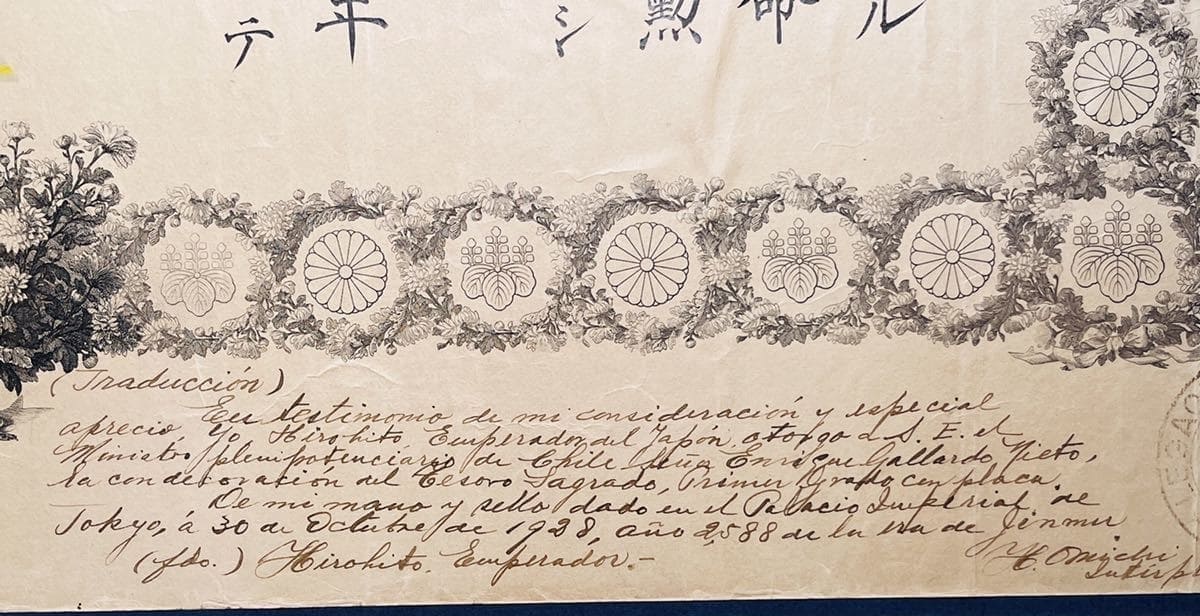 ル
命
勲
シ
平
テ
(Traducción)
En testimonio de mi consideración y especial
aprecio, Yo Hirohito, Emperador del Japón, otorgo a S. E. el
Ministro plenipotenciario de Chile Enrique Gallardo Nieto,
la condecoración del Tesoro Sagrado, Primer Grado con placa.
De mi mano y sello dado en el Palacio Imperial de
Tokyo, á 30 de Octubre de 1928, año 2588 de la era de Jinmu
(fdo.) Hirohito. Emperador.-
H. Omichi
LEGAC